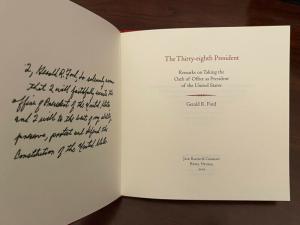 "I, Gerald R. Ford, do solemnly swear
that I will faithfully execute the
office of President of the United States
and I will to the best of my ability,
preserve, protect and defend the
Constitution of the United States.
The Thirty-eighth President
Remarks on Taking the
Oath of Office as President
of the United States
Gerald R. Ford
Reno, Nevada